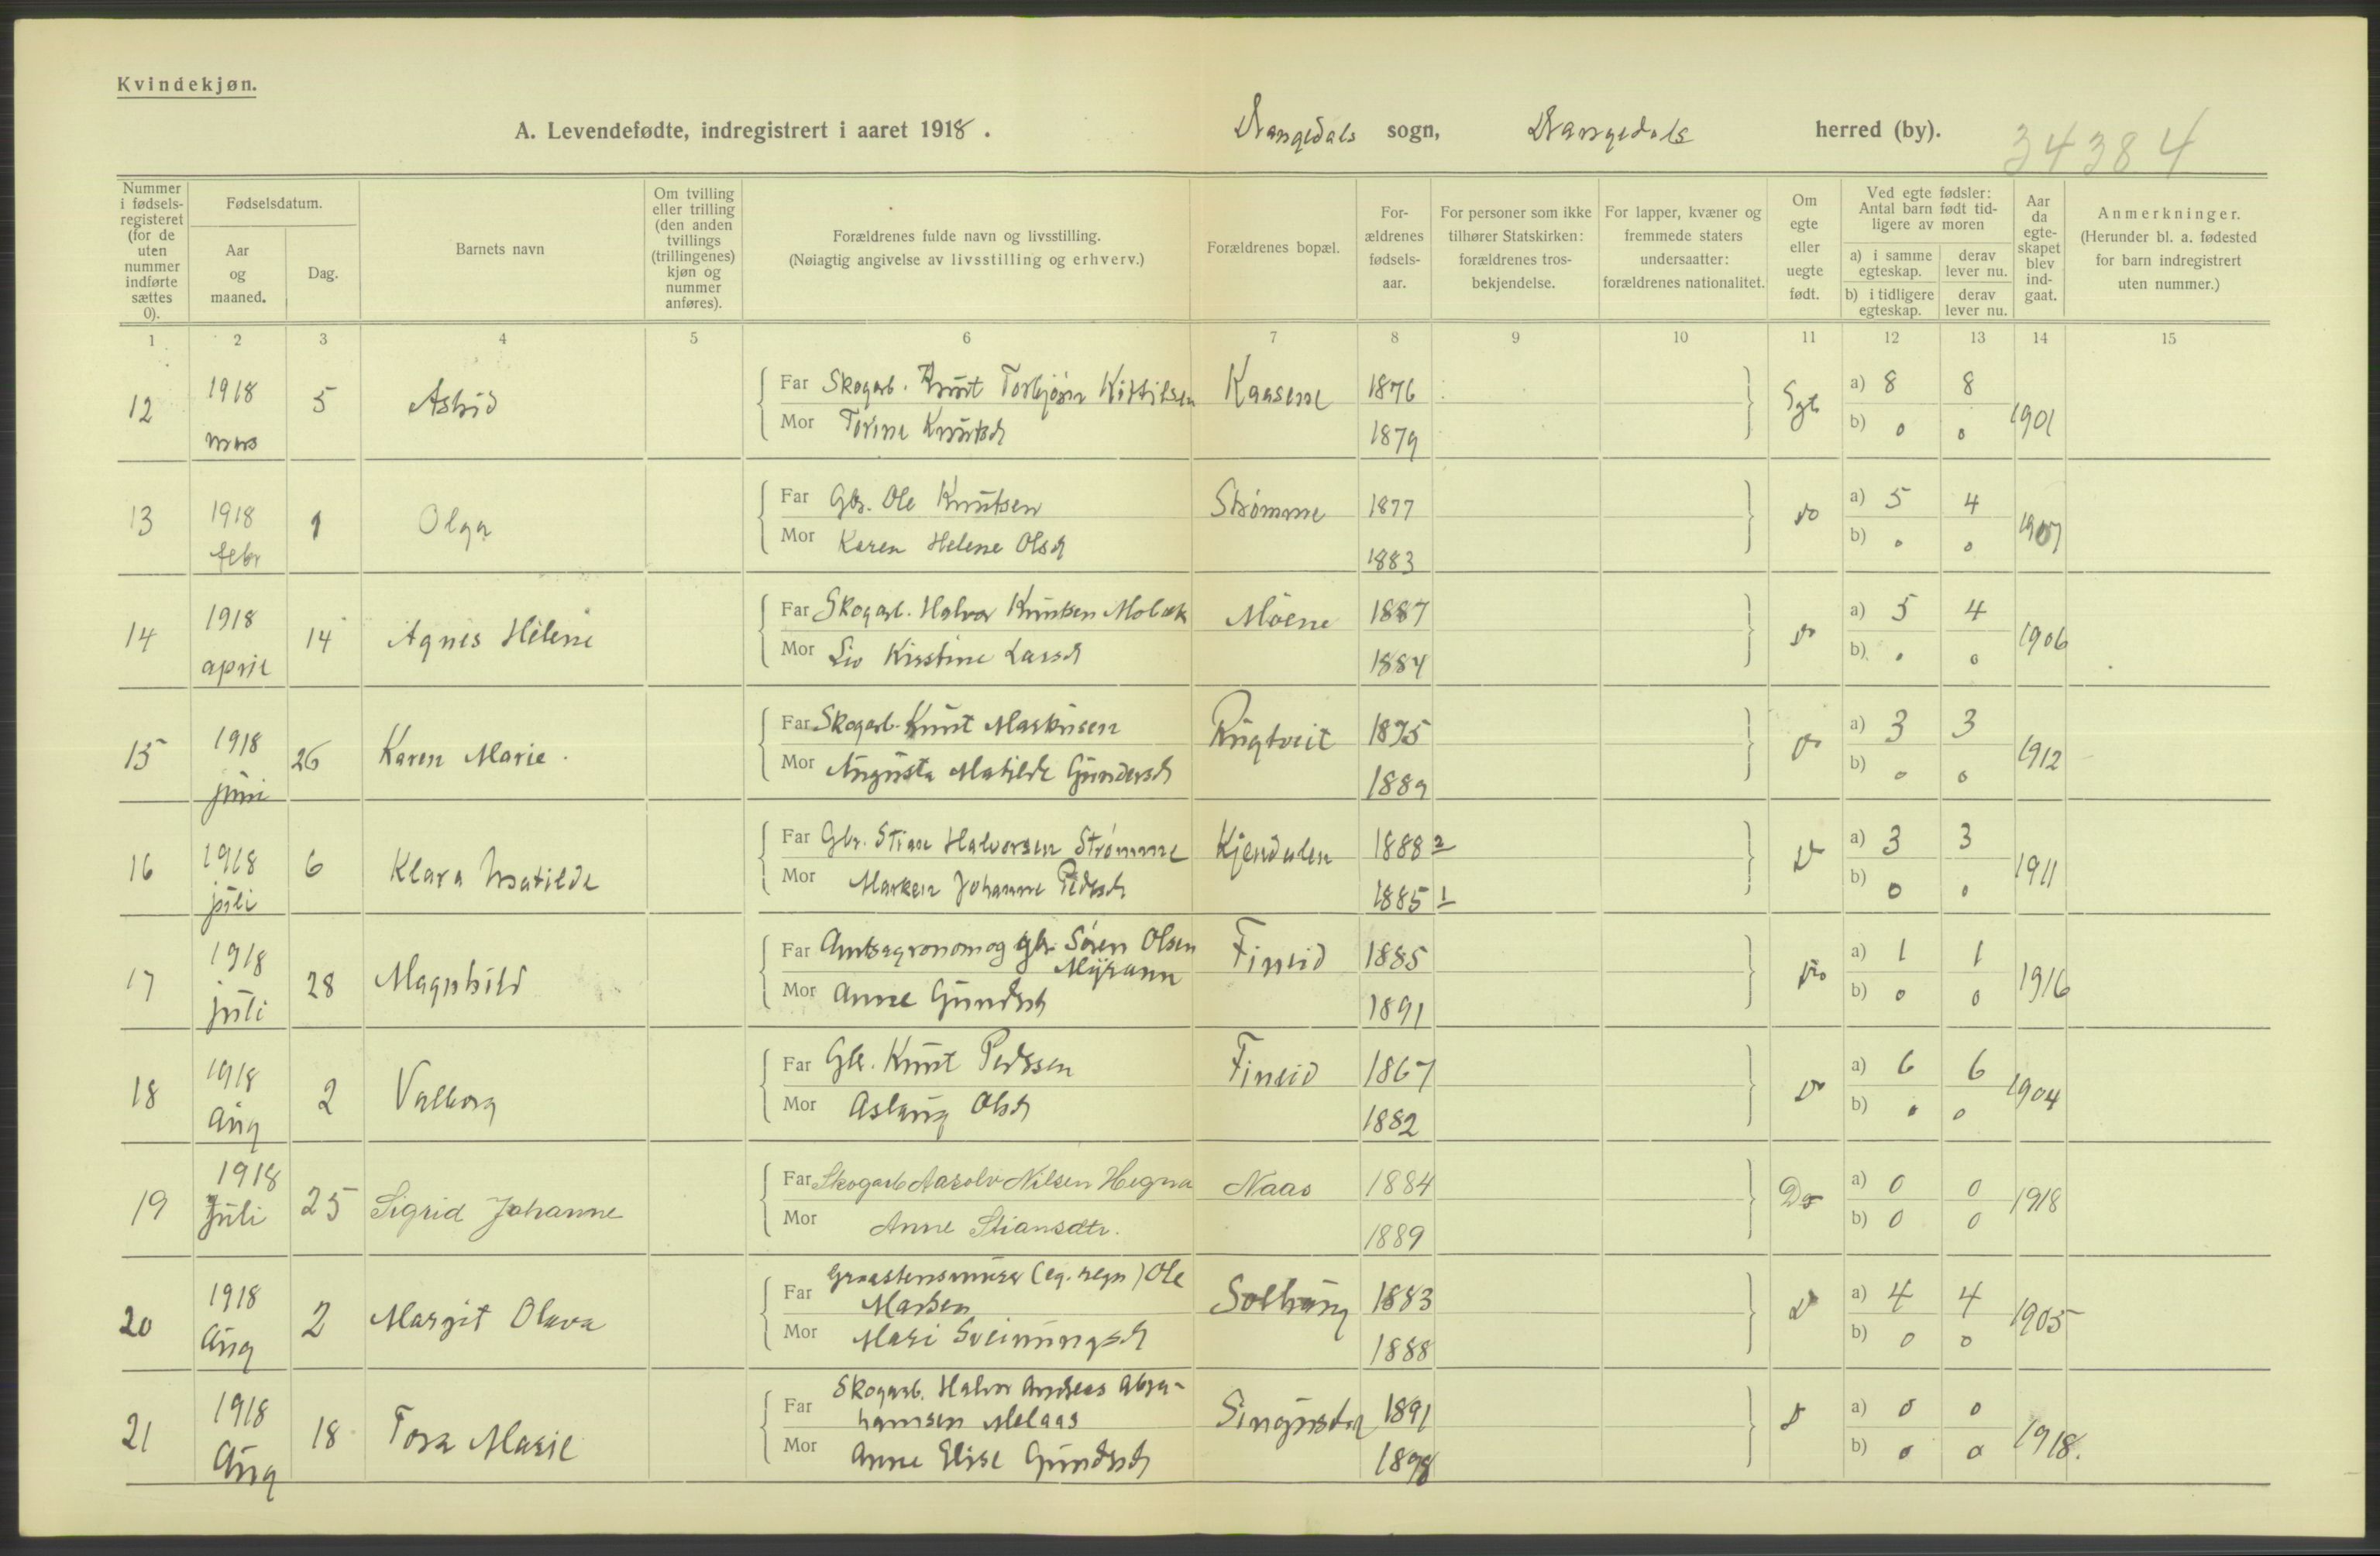 Kvindekjøn.
A. Levendefødte, indregistrert i aaret 1918. Drangedals sogn, Drangedals herred (by). 34384
Nummer i fødselsregisteret (for de uten nummer indførte sættes 0).
Fødselsdatum.
Aar og maaned.
Dag.
Barnets navn
Om tvilling eller trilling (den anden tvillings (trillingenes) kjøn og nummer anføres).
Forældrenes fulde navn og livsstilling.
(Nøiagtig angivelse av livsstilling og erhverv.)
Forældrenes bopæl.
Forældrenes fødselsaar.
For personer som ikke tilhører Statskirken: forældrenes trosbekjendelse.
For lapper, kvæner og fremmede staters undersaatter: forældrenes nationalitet.
Om egte eller uegte født.
Ved egte fødsler: Antal barn født tidligere av moren
a) i samme egteskap. derav lever nu.
b) i tidligere egteskap. derav lever nu.
Aar da egteskapet blev indgaat.
Anmerkninger.
(Herunder bl. a. fødested for barn indregistrert uten nummer.)
1 2 3 4 5 6 7 8 9 10 11 12 13 14 15
12 1918 mars 5 Astrid
Far Skogarb. Knut Torbjörn Kittilsen Kaasene 1876 Egte a) 8 8
Mor Torine Knutsd 1879 b) 0 0 1901
13 1918 febr 1 Olga
Far Gbr. Ole Knutsen Strømme 1877 Do a) 5 4
Mor Karen Helene Olsd 1883 b) 0 0 1907
14 1918 april 14 Agnes Helene
Far Skogarb. Halvor Knutsen Mobæk Moene 1887 Do a) 5 4
Mor Liv Kirstine Larsd 1884 b) 0 0 1906
15 1918 juni 26 Karen Marie.
Far Skogarb. Knut Markusen Rugtveit 1875 Do a) 3 3
Mor Augusta Matilde Gundersd 1889 b) 0 0 1912
16 1918 juli 6 Klara Matilde
Far Gbr. Stian Halvorsen Strømme Kjendalen 1888 2 D a) 3 3
Mor Marken Johanne Pedersd 1885 1 b) 0 0 1911
17 1918 juli 28 Magnhild
Far Amtsagronom og gbr. Søren Olsen Myrann Fineid 1885 Do a) 1 1
Mor Anne Gundersd 1891 b) 0 0 1916
18 1918 Aug 2 Valborg
Far Gbr. Knut Pedersen Fineid 1867 Do a) 6 6
Mor Aslaug Olsd 1882 b) 0 0 1904
19 1918 Juli 25 Sigrid Johanne
Far Skogarb Aasolv Nilsen Hegna Naas 1884 Do a) 0 0
Mor Anne Stiansdtr. 1889 b) 0 0 1918
20 1918 Aug 2 Margit Olava
Far Graastensmurer (eg. regn) Ole
Marsen Solhaug 1883 D a) 4 4
Mor Mari Sveinungsd 1888 b) 0 0 1905
21 1918 Aug 18 Tora Marie
Far Skogarb. Halvor Andreas Abra-
hamsen Melaas 1891 D a) 0 0
Mor Anne Elise Gundersd 1898 b) 0 0 1918.